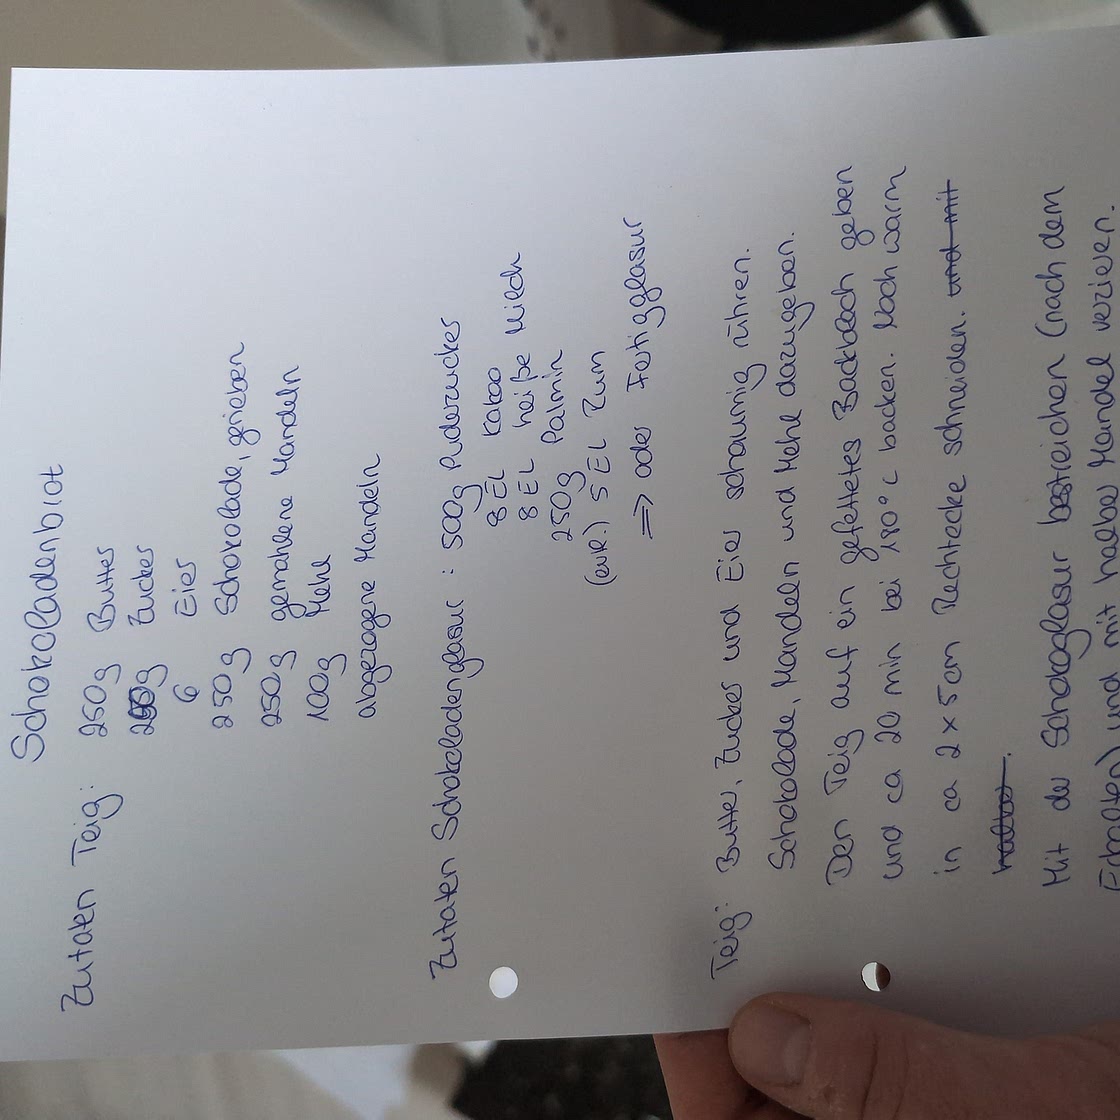 Schokoladenbrot
Zutaten Teig: 250g Butter
250g Zucker
6 Eier
250g Schokolade, gerieben
250g gemahlene Mandeln
100g Mehl
abgezogene Mandeln
Zutaten Schokoladenglasur: 500g Puderzucker
8 EL Kakao
8 EL heiße Milch
250g Palmin
(evtl.) 5 EL Rum
=> oder Fertigglasur
Teig: Butter, Zucker und Eier schaumig rühren.
Schokolade, Mandeln und Mehl dazugeben.
Den Teig auf ein gefettetes Backblech geben
und ca 20 min bei 180°C backen. Noch warm
in ca 2 x 5cm Rechtecke schneiden. und mit
halber.
Mit der Schokoglasur bestreichen (nach dem
Erkalten) und mit halber Mandel verzieren.